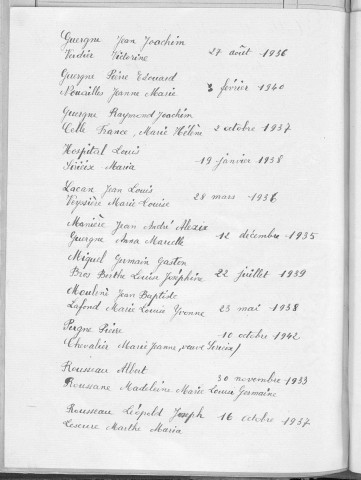 Guergne Jean Joachim
Verdier Victorine 27 août 1936
Guergne Pierre Edouard
Nouailles Jeanne Marie 3 février 1940
Guergne Raymond Joachim
Celle France, Marie Hélène 2 octobre 1937
Hospital Louis
Seriéix Maria 19 janvier 1938
Lacan Jean Louis
Veyssière Marie Louise 28 mars 1936
Manière Jean André Alezix
Guergne Anna Marcelle 12 décembre 1935
Miquel Germain Gaston
Bros Berthe Louise Joséphine 22 juillet 1939
Moulené Jean Baptiste
Lafond Marie Louise Yvonne 23 mai 1938
Pergne Pierre 10 octobre 1942
(Chevalier Marie Jeanne, veuve Serieix)
Rousseau Albert 30 novembre 1933
Roussane Madeleine Marie Louise Germaine
Rousseau Léopold Joseph 16 octobre 1937
Lescure Marthe Maria